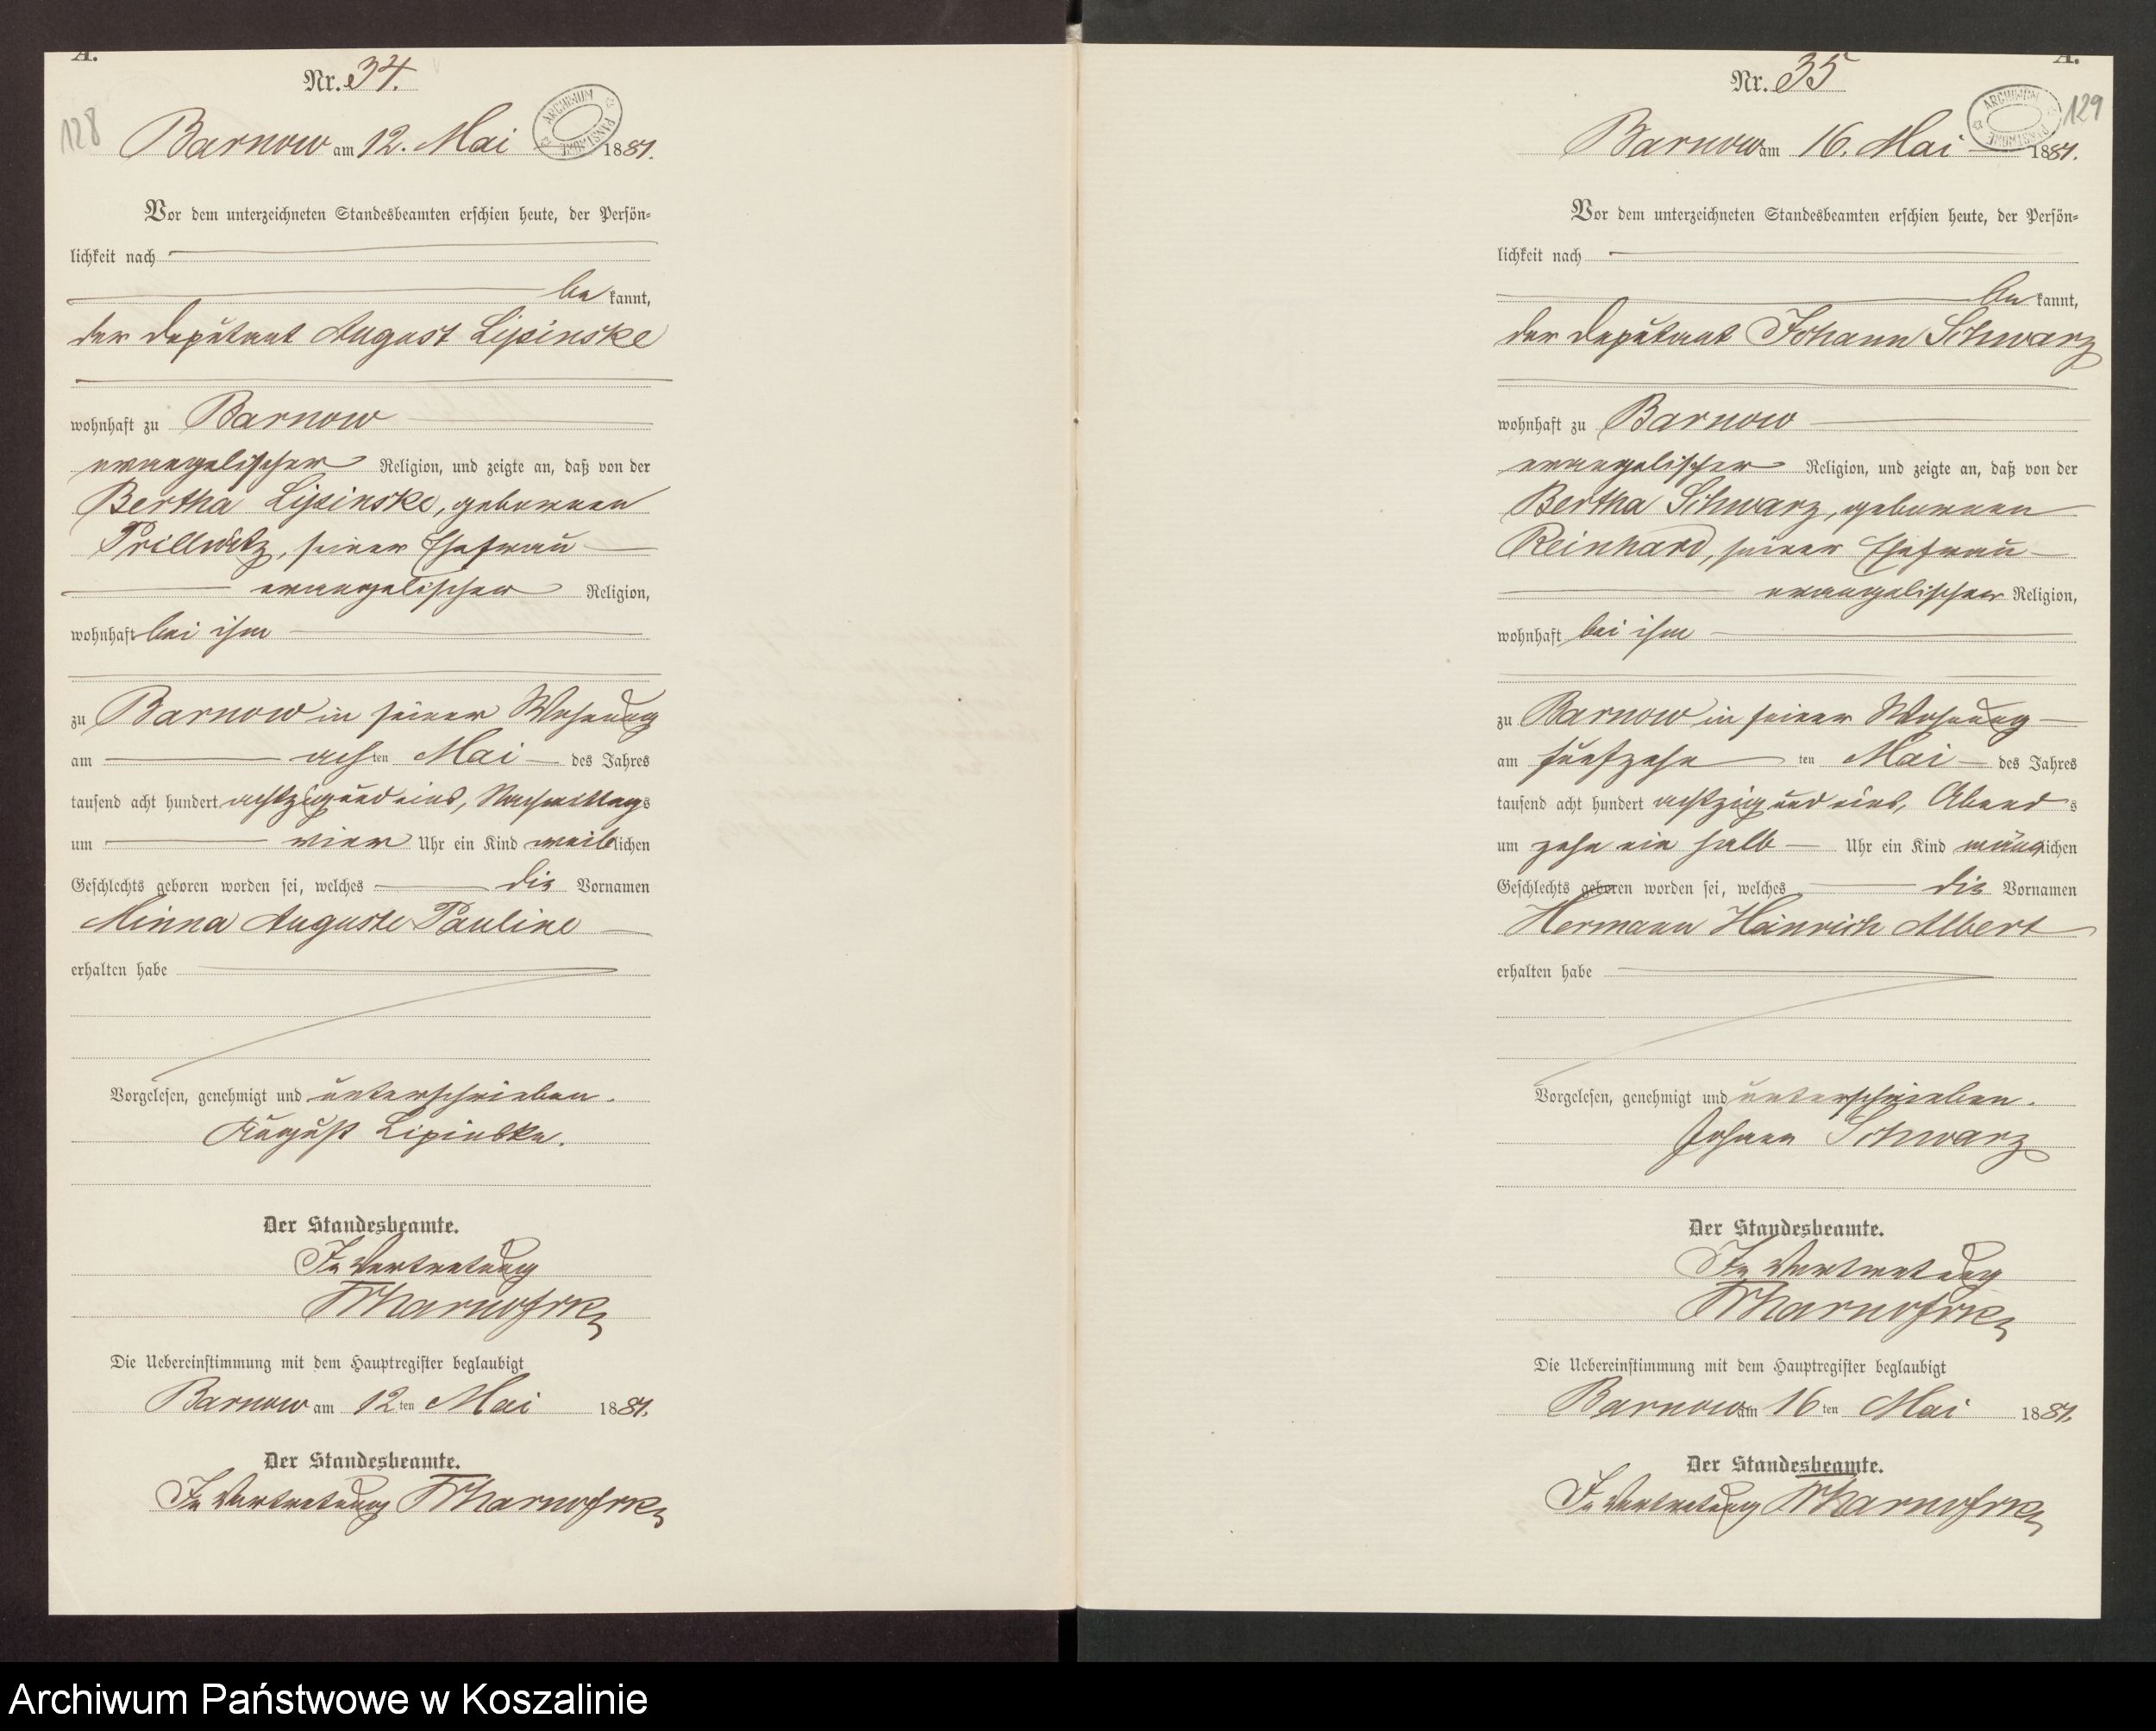 A.
Nr. 34.
128
Barnow am 12. Mai 1881.
ARCHIWUM PAŃSTWOWE
Vor dem unterzeichneten Standesbeamten erschien heute, der Persön-
lichkeit nach
be kannt,
der Deputant August Lipinske
wohnhaft zu Barnow
evangelischer Religion, und zeigte an, daß von der
Bertha Lipinske, geborenen
Prillwitz, seiner Ehefrau
evangelischer Religion,
wohnhaft bei ihm
zu Barnow in seiner Wohnung
am achten Mai des Jahres
tausend acht hundert achtzig und eins, Nachmittags
um vier Uhr ein Kind weiblichen
Geschlechts geboren worden sei, welches die Vornamen
Minna Auguste Pauline
erhalten habe
Vorgelesen, genehmigt und unterschrieben.
August Lipinske.
Der Standesbeamte.
In Vertretung
Die Uebereinstimmung mit dem Hauptregister beglaubigt
Barnow am 12ten Mai 1881.
Der Standesbeamte.
In Vertretung
A.
Nr. 35
129
Barnow am 16. Mai 1881.
ARCHIWUM PAŃSTWOWE
Vor dem unterzeichneten Standesbeamten erschien heute, der Persön-
lichkeit nach
be kannt,
der Deputant Johann Schwarz
wohnhaft zu Barnow
evangelischer Religion, und zeigte an, daß von der
Bertha Schwarz, geborenen
Reinhard, seiner Ehefrau
evangelischer Religion,
wohnhaft bei ihm
zu Barnow in seiner Wohnung
am fünfzehnten Mai des Jahres
tausend acht hundert achtzig und eins, Abends
um zehn ein halb Uhr ein Kind männlichen
Geschlechts geboren worden sei, welches die Vornamen
Hermann Heinrich Albert
erhalten habe
Vorgelesen, genehmigt und unterschrieben.
Johann Schwarz
Der Standesbeamte.
In Vertretung
Die Uebereinstimmung mit dem Hauptregister beglaubigt
Barnow am 16ten Mai 1881.
Der Standesbeamte.
In Vertretung
Archiwum Państwowe w Koszalinie